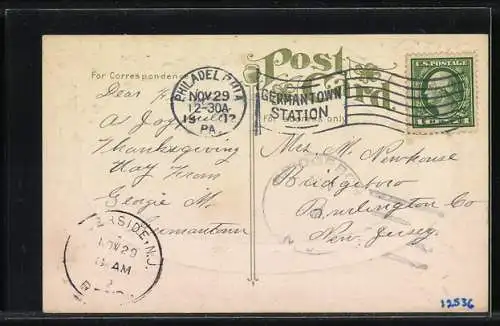 Post Card
For Correspondence
PHILADELPHIA
NOV 29
12-30A
PA.
GERMANTOWN
STATION
U.S. POSTAGE
Dear
A Joyful
Thanksgiving
Day From
Georgie M.
Germantown
Mrs. M. Newhouse
Bridgeboro
Burlington Co
New Jersey.
ERSIDE, N.J.
NOV 29
AM
12536